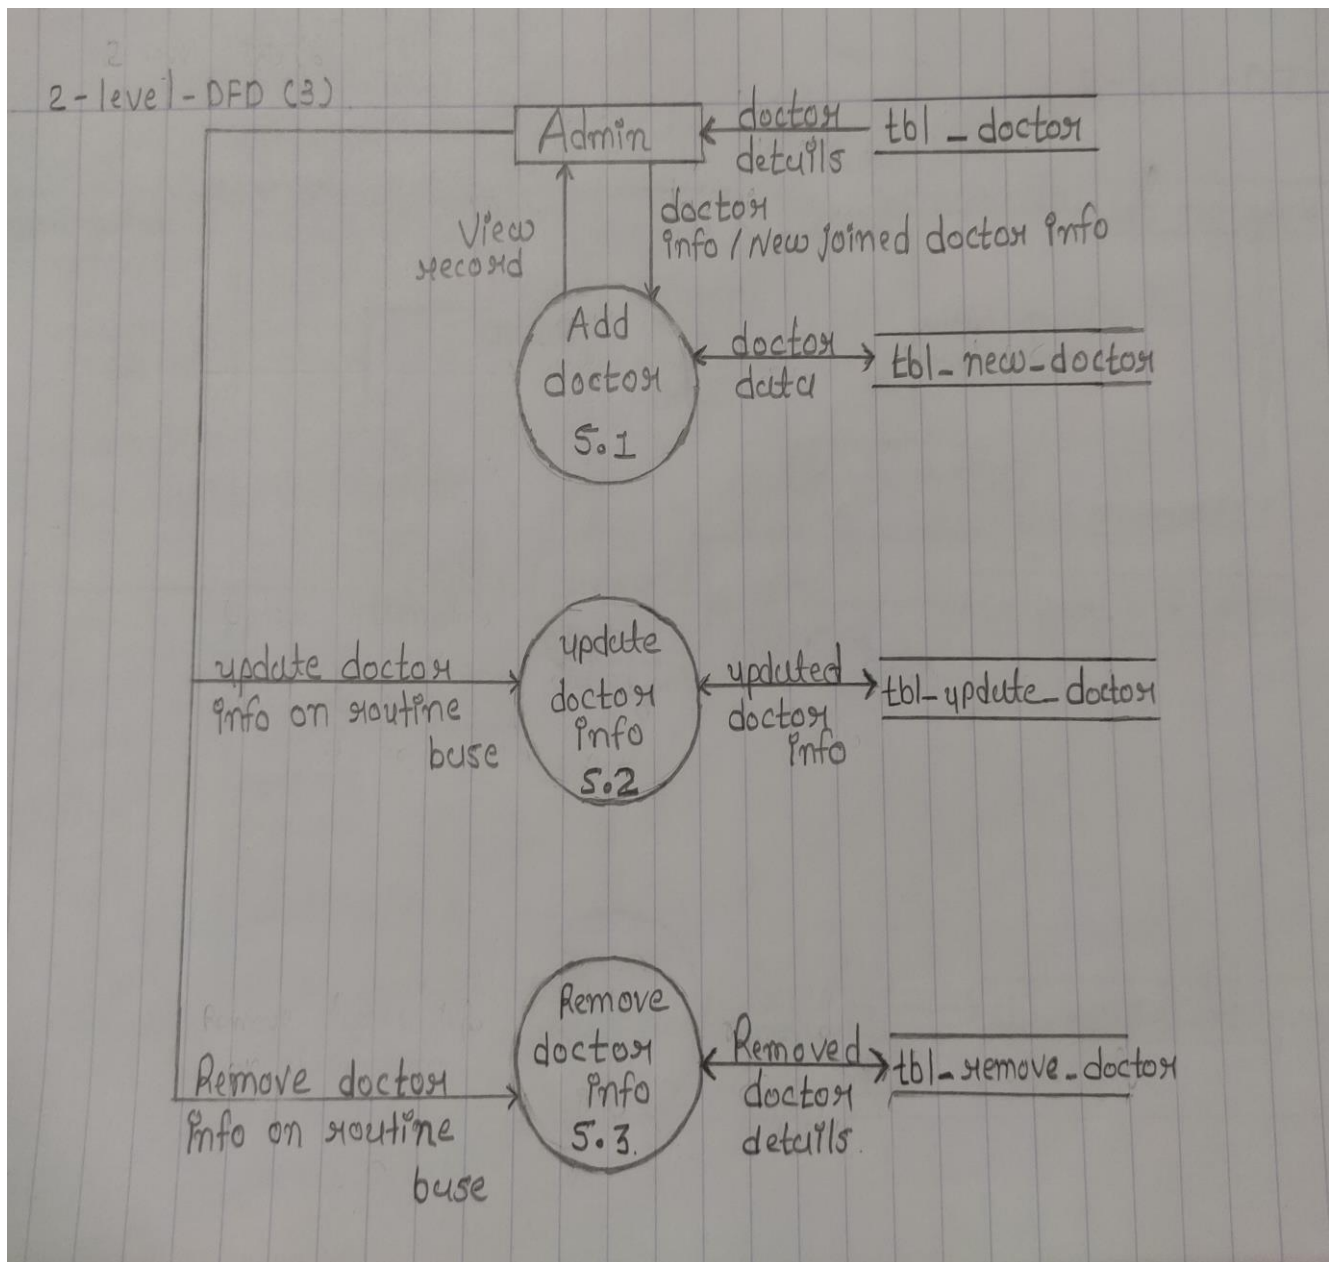 2-level-DFD (3)
Admin
doctor
details
tbl_doctor
View
record
doctor
info / New joined doctor info
Add
doctor
5.1
doctor
data
tbl_new_doctor
update doctor
info on routine
base
update
doctor
info
5.2
updated
doctor
info
tbl_update_doctor
Remove doctor
info on routine
base
Remove
doctor
info
5.3.
Removed
doctor
details.
tbl_remove_doctor